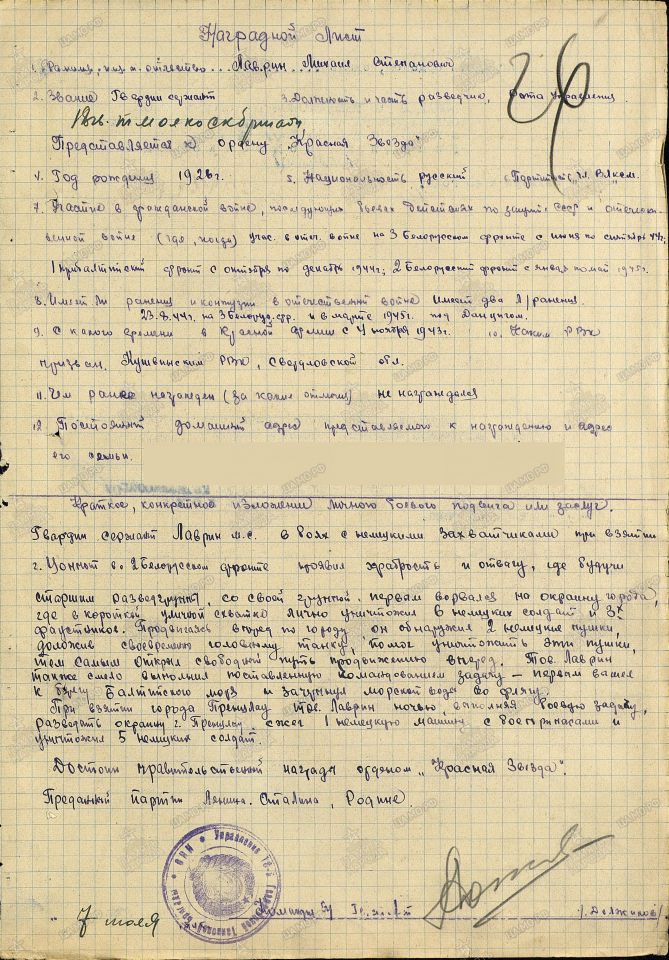 Наградной Лист
26
1. Фамилия, имя и отчество Лаврин Михаил Степанович
2. Звание Гвардии сержант 3. Должность и часть разведчик, рота Управления
Представляется к ордену „Красная Звезда"
4. Год рождения 1926г. 5. Национальность русский 6. Партийность чл. ВЛКСМ.
7. Участие в гражданской войне, последующих боевых действиях по защите СССР и отечест-
венной войне (где, когда) учас. в отеч. войне на 3 Белорусском фронте с июня по сентябрь 44г.
1 Прибалтийский фронт с октября по декабрь 1944г; 2 Белорусский фронт с января по май 1945г.
8. Имеет ли ранения и контузии в отечественной войне Имеет два л/ранения.
23.8.44г. на 3 Белорус. фр. и в марте 1945г. под Данцигом.
9. С какого времени в Красной Армии с 4 ноября 1943г. 10. Каким РВК
призван. Кушвинским РВК, Свердловской обл.
11. Чем ранее награжден (за какие отличия) не награждался
12. Постоянный домашний адрес представляемого к награждению и адрес
его семьи.
Краткое, конкретное изложение личного боевого подвига или заслуг.
Гвардии сержант Лаврин М.С. в боях с немецкими захватчиками при взятии
г. во 2 Белорусском фронте проявил храбрость и отвагу, где будучи
старшим разведгруппы, со своей группой первым ворвался на окраину города,
где в короткой уличной схватке лично уничтожил 6 немецких солдат и 3х
фаустников. Продвигаясь вперед по городу он обнаружил 2 немецкие пушки,
доложив своевременно головному танку, помог уничтожить эти пушки,
тем самым открыл свободный путь продвижению вперед. Тов. Лаврин
также смело выполнил поставленную командованием задачу – первым вышел
к берегу Балтийского моря и зачерпнул морской воды во флягу.
При взятии города Пренцлау тов. Лаврин ночью, выполняя боевую задачу,
разведать окраину г. Пренцлау сжег 1 немецкую машину с боеприпасами и
уничтожил 5 немецких солдат.
Достоин правительственной награды орденом „Красная Звезда".
Преданный партии Ленина, Сталина, Родине.
Командир
7 июля
/Должиков/